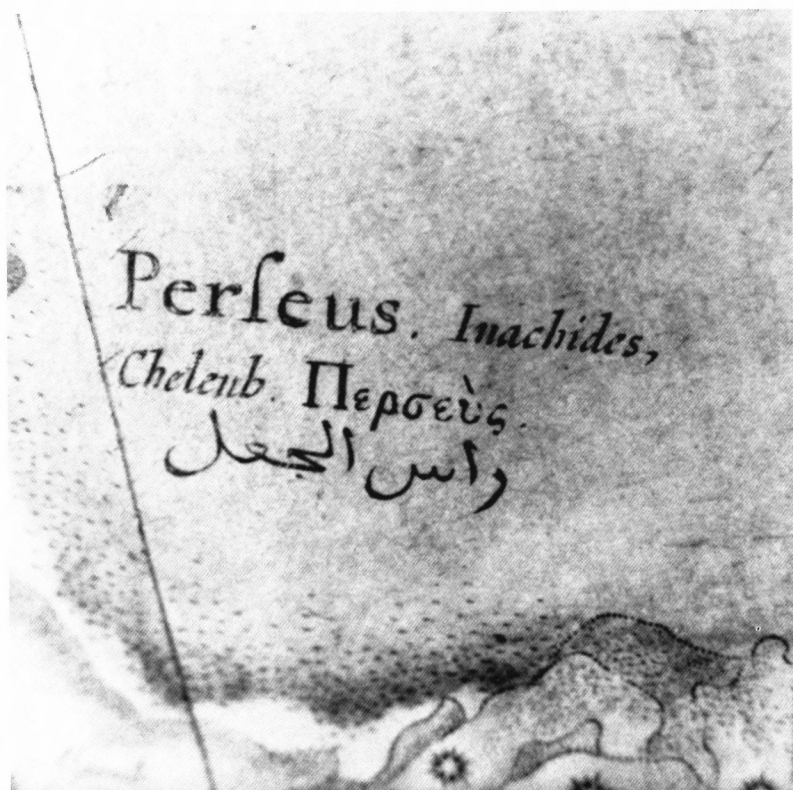 Perſeus. Inachides,
Cheleub. Περσεὺς.
راس الجعل